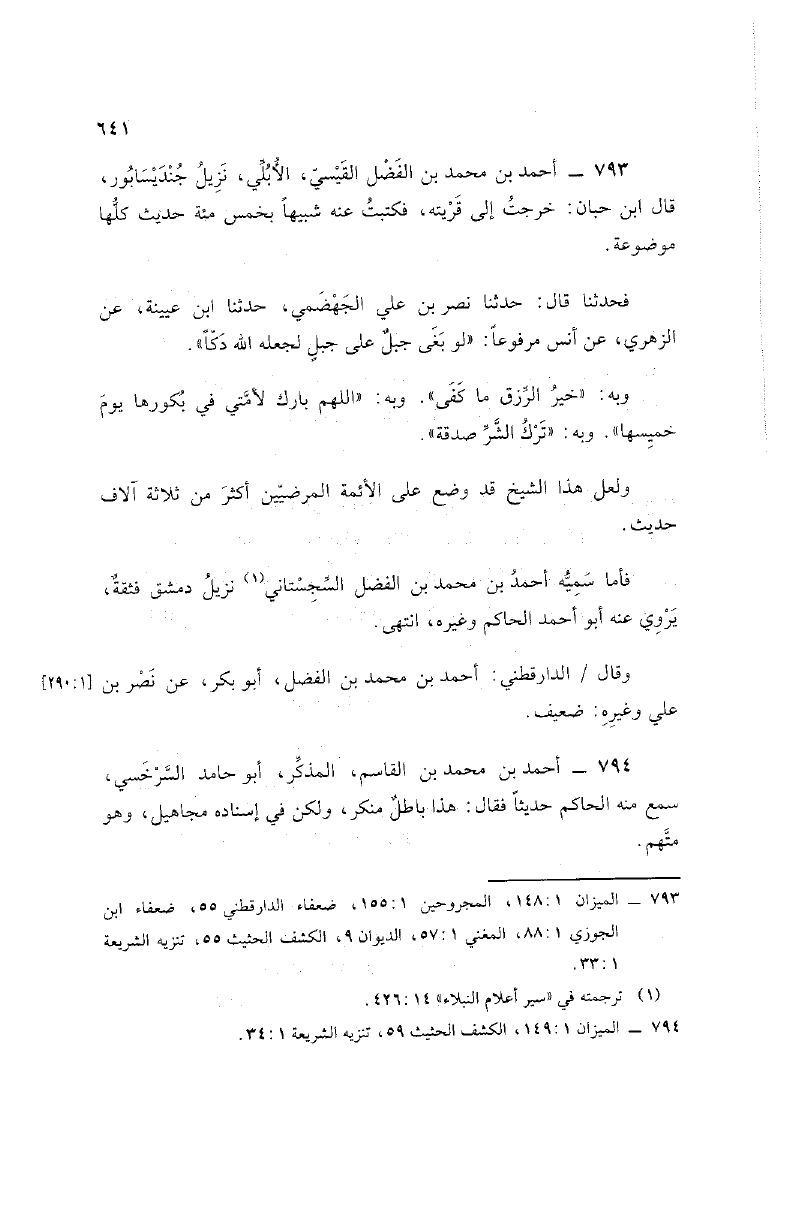 ٦٤١
٧٩٣ ـ أحمد بن محمد بن الفَضْل القَيْسيّ، الأُبُلِّي، نَزِيلُ جُنْدَيْسَابُور،
قال ابن حبان: خرجتُ إلى قَرْيته، فكتبتُ عنه شبيهاً بخمس مئة حديث كلُّها
موضوعة.
فحدثنا قال: حدثنا نصر بن علي الجَهْضَمي، حدثنا ابن عيينة، عن
الزهري، عن أنس مرفوعاً: «لو بَغَى جبلٌ على جبلٍ لجعله الله دَكّاً».
وبه: «خيرُ الرِّزق ما كَفَى». وبه: «اللهم بارك لأمَّتي في بُكورها يومَ
خميسها». وبه: «تَرْكُ الشَّرِّ صدقة».
ولعل هذا الشيخ قد وضع على الأئمة المرضيّين أكثرَ من ثلاثة آلاف
حديث.
فأما سَمِيُّه أحمدُ بن محمد بن الفضل السِّجِسْتاني(١) نزيلُ دمشق فثقةٌ،
يَرْوِي عنه أبو أحمد الحاكم وغيره، انتهى.
وقال / الدارقطني: أحمد بن محمد بن الفضل، أبو بكر، عن نَصْر بن [٢٩٠:١]
علي وغيرِه: ضعيف.
٧٩٤ ـ أحمد بن محمد بن القاسم، المذكِّر، أبو حامد السَّرْخَسي،
سمع منه الحاكم حديثاً فقال: هذا باطلٌ منكر، ولكن في إسناده مجاهيل، وهو
متَّهم.
٧٩٣ ـ الميزان ١٤٨:١، المجروحين ١٥٥:١، ضعفاء الدارقطني ٥٥، ضعفاء ابن
الجوزي ٨٨:١، المغني ٥٧:١، الديوان ٩، الكشف الحثيث ٥٥، تنزيه الشريعة
٣٣:١.
(١) ترجمته في «سير أعلام النبلاء» ٤٢٦:١٤.
٧٩٤ ـ الميزان ١٤٩:١، الكشف الحثيث ٥٩، تنزيه الشريعة ٣٤:١.